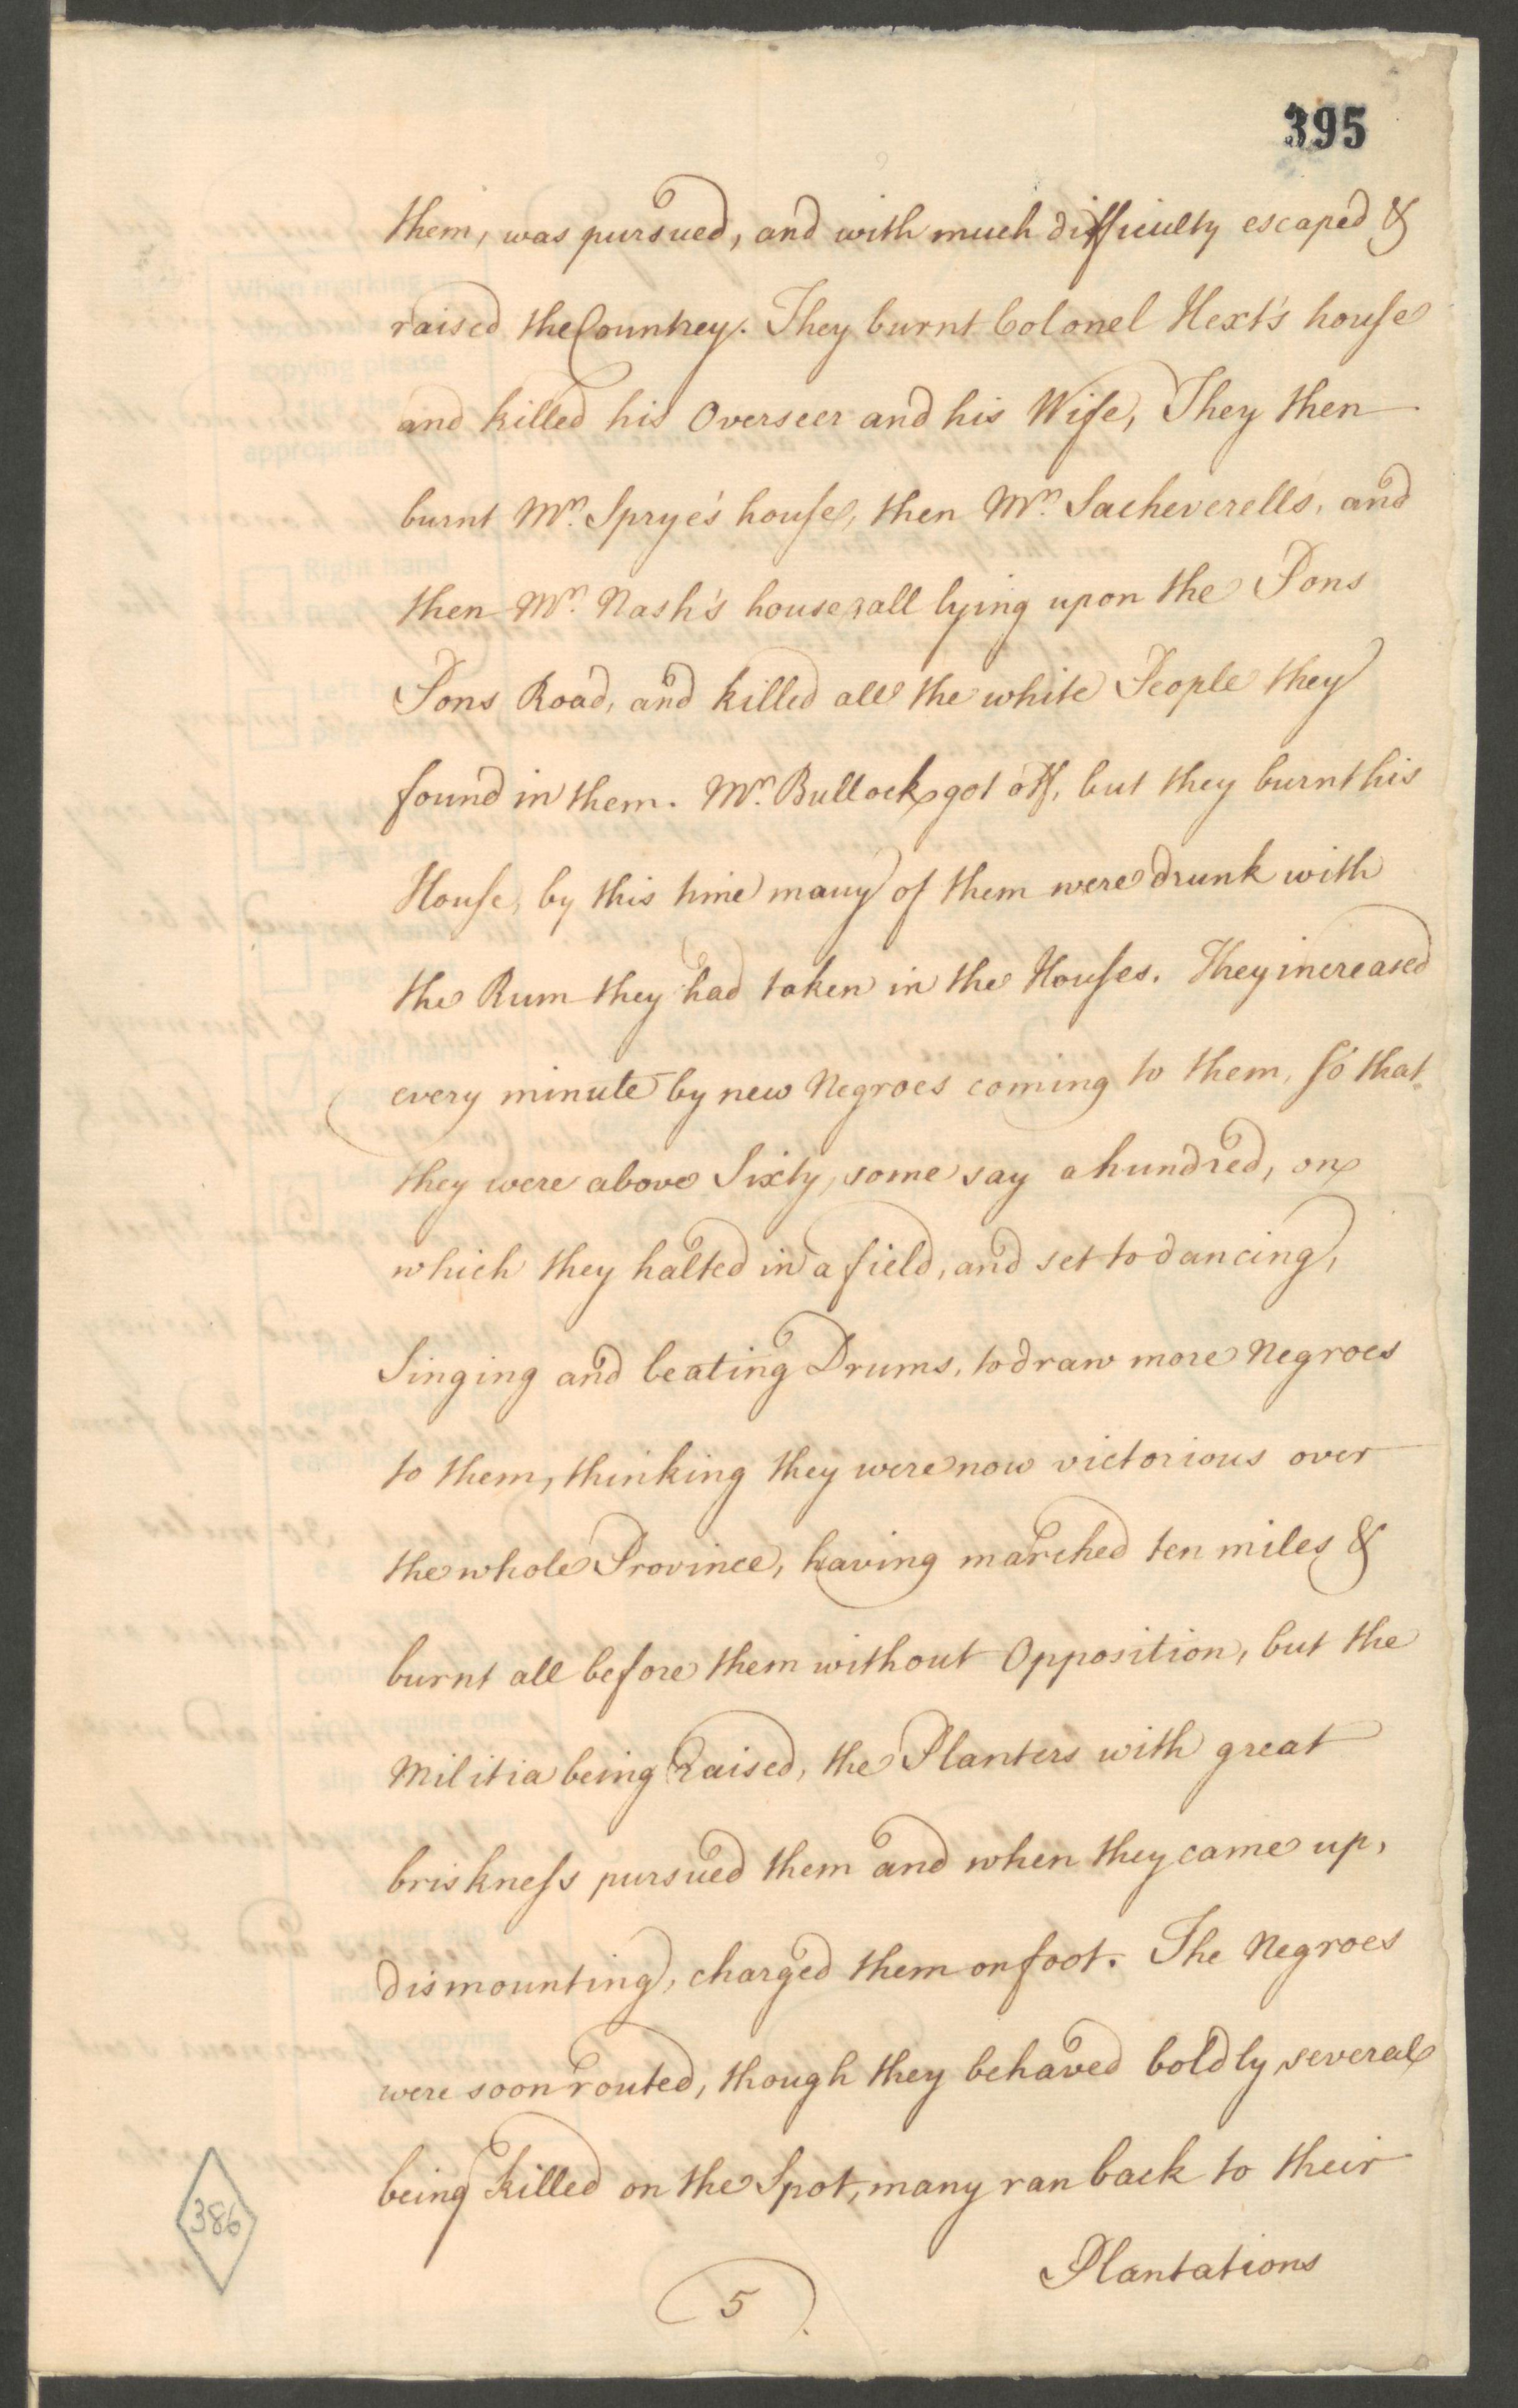 395
them, was pursued, and with much difficulty escaped &
raised the Countrey. They burnt Colonel Hext's house
and killed his Overseer and his Wife, They then
burnt Mr. Sprye's house, then Mr. Sacheverells, and
then Mr. Nash's house, all lying upon the Pons
Pons Road, and killed all the white People they
found in them. Mr. Bullock got off, but they burnt his
House, by this time many of them were drunk with
the Rum they had taken in the Houses. They increased
every minute by new Negroes coming to them, so that
they were above Sixty, some say a hundred, on
which they halted in a field, and set to dancing,
Singing and beating Drums, to draw more Negroes
to them, thinking they were now victorious over
the whole Province, having marched ten miles &
burnt all before them without Opposition, but the
Militia being raised, the Planters with great
briskness pursued them and when they came up,
dismounting, charged them on foot. The Negroes
were soon routed, though they behaved boldly several
being killed on the Spot, many ran back to their
Plantations
386
5